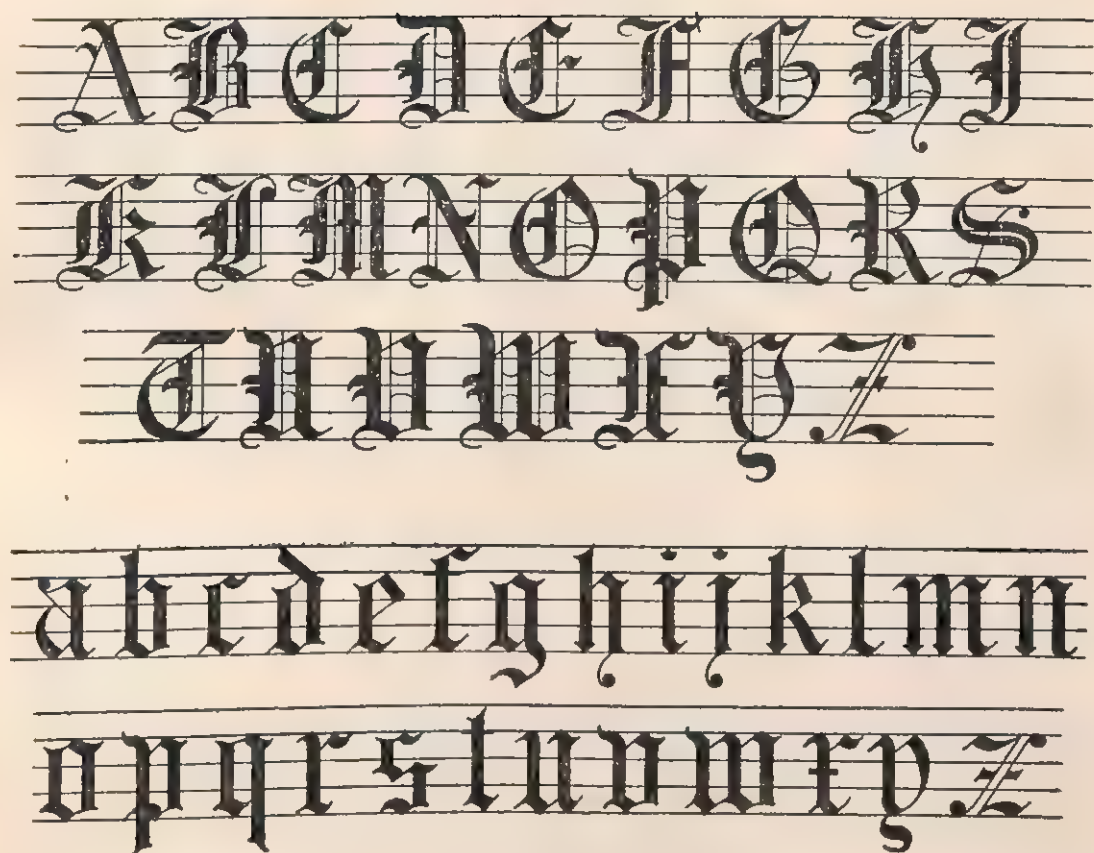 A B C D E F G H I
K L M N O P Q R S
T U V W X Y Z
a b c d e f g h i j k l m n
o p q r s t u v w x y z